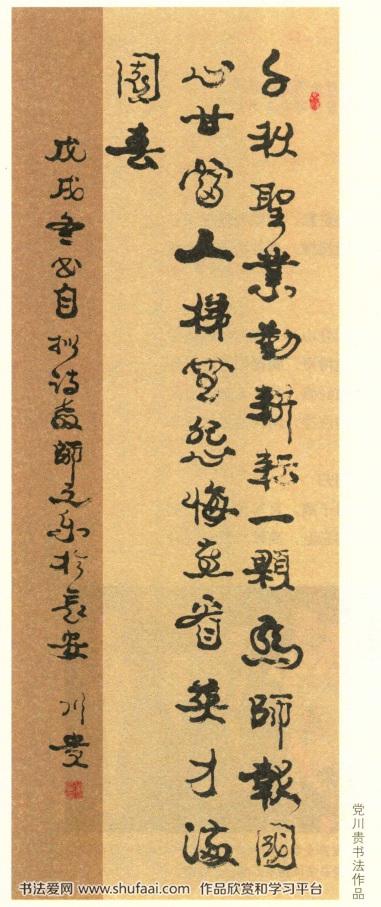 千秋聖業勤耕耘一顆為師報國
心甘當人梯無怨悔喜看英才滿
園春
戊戌冬書自撰詩教師之歌於長安 川貴
党川贵书法作品
书法爱网 www.shufaai.com 作品欣赏和学习平台